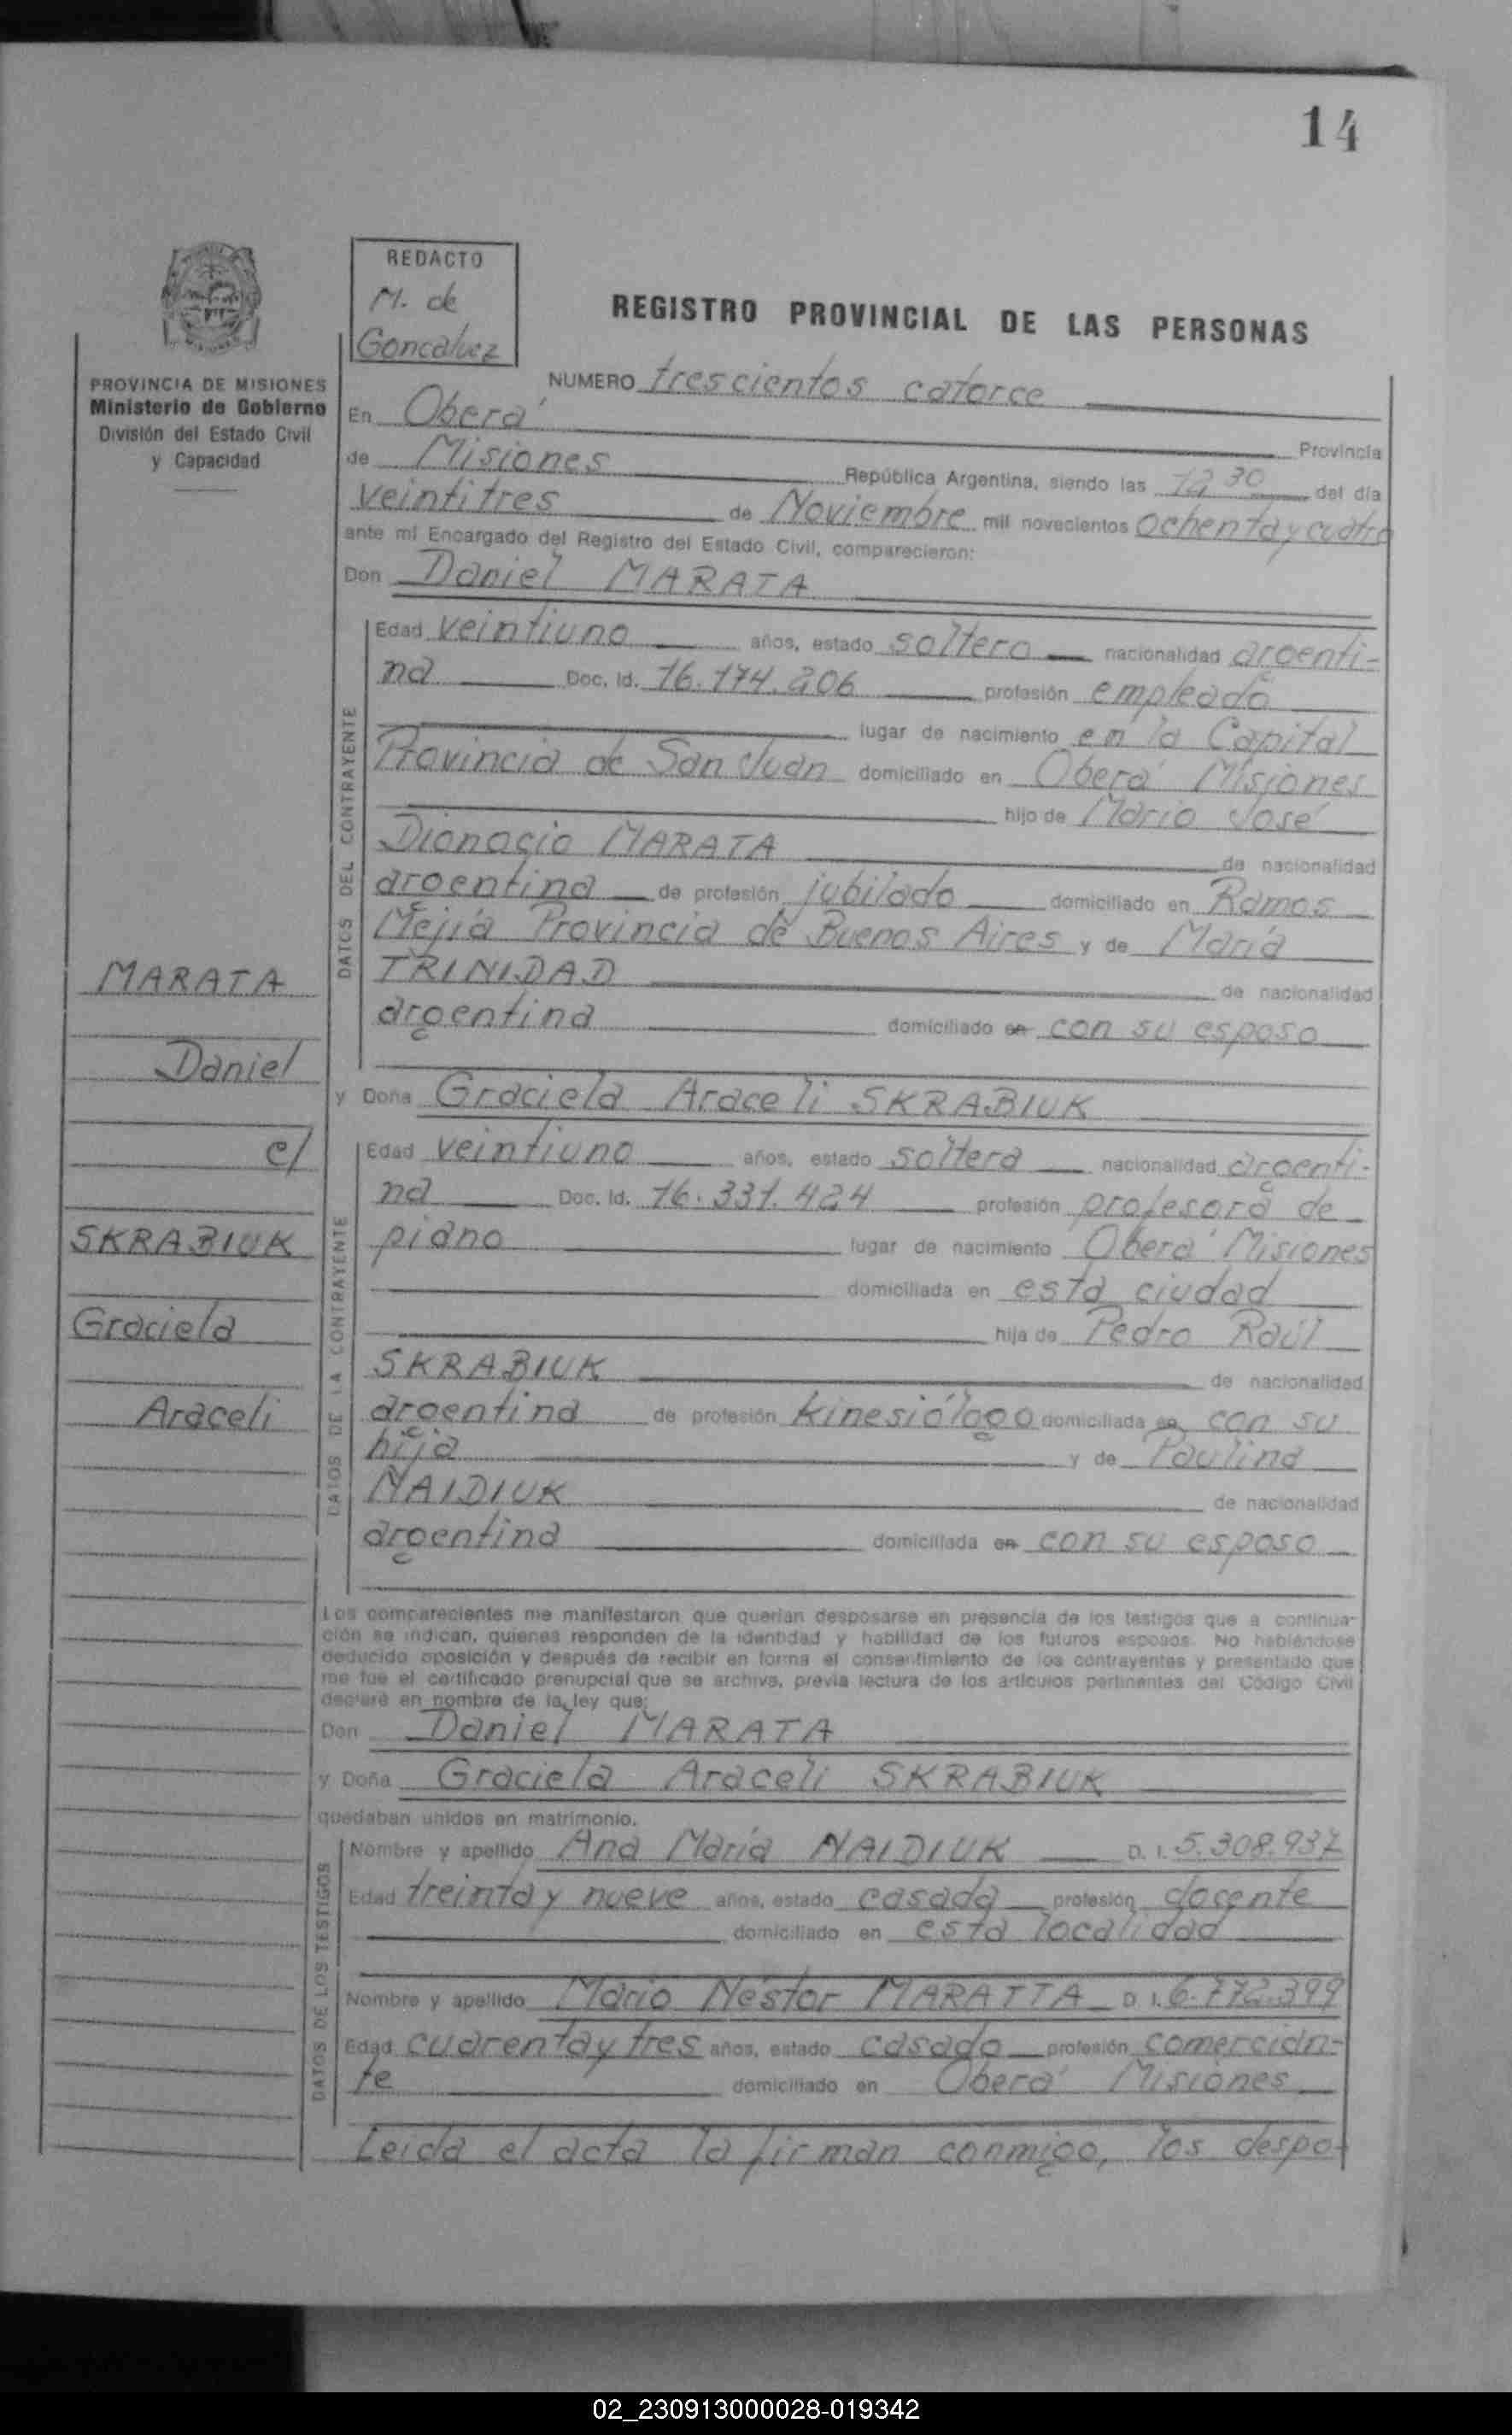 14
REDACTO
M. de
Goncalvez
REGISTRO PROVINCIAL DE LAS PERSONAS
PROVINCIA DE MISIONES
Ministerio de Gobierno
División del Estado Civil
y Capacidad
NUMERO trescientos catorce
En Oberá Provincia
de Misiones República Argentina, siendo las 12 30 del día
veintitres de Noviembre mil novecientos ochenta y cuatro
ante mí Encargado del Registro del Estado Civil, comparecieron:
Don Daniel MARATA
DATOS DEL CONTRAYENTE
Edad veintiuno años, estado soltero nacionalidad argenti-
na Doc. Id. 16.174.206 profesión empleado
lugar de nacimiento en la Capital
Provincia de San Juan domiciliado en Oberá Misiones
hijo de Mario José
Dionacio MARATA de nacionalidad
argentina de profesión jubilado domiciliado en Ramos
Mejía Provincia de Buenos Aires y de María
TRINIDAD de nacionalidad
argentina domiciliado en con su esposo
y Doña Graciela Araceli SKRABIUK
DATOS DE LA CONTRAYENTE
Edad veintiuno años, estado soltera nacionalidad argenti-
na Doc. Id. 16.331.424 profesión profesora de
piano lugar de nacimiento Oberá Misiones
domiciliada en esta ciudad
hija de Pedro Raúl
SKRABIUK de nacionalidad
argentina de profesión kinesiólogo domiciliada en con su
hija y de Paulina
NAIDIUK de nacionalidad
argentina domiciliada en con su esposo
MARATA
Daniel
c/
SKRABIUK
Graciela
Araceli
Los comparecientes me manifestaron que querían desposarse en presencia de los testigos que a continua-
ción se indican, quienes responden de la identidad y habilidad de los futuros esposos. No habiéndose
deducido oposición y después de recibir en forma el consentimiento de los contrayentes y presentado que
me fue el certificado prenupcial que se archiva, previa lectura de los artículos pertinentes del Código Civil
declaré en nombre de la ley que:
Don Daniel MARATA
y Doña Graciela Araceli SKRABIUK
quedaban unidos en matrimonio.
DATOS DE LOS TESTIGOS
Nombre y apellido Ana María NAIDIUK D. I. 5.308.937
Edad treinta y nueve años, estado casada profesión docente
domiciliado en esta localidad
Nombre y apellido Mario Néstor MARATTA D. I. 6.772.399
Edad cuarenta y tres años, estado casado profesión comercian-
te domiciliado en Oberá Misiones
Leida el acta la firman conmigo, los despo-
02_230913000028-019342